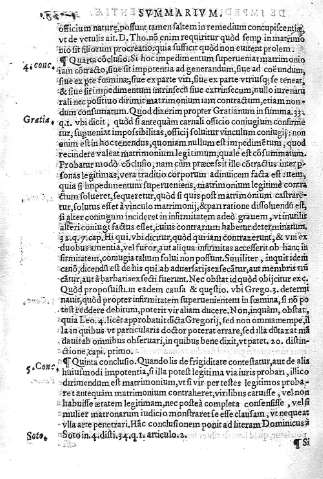 SVMMARIVM.
officium naturæ, possunt tamen saltem in remedium concupiscentiæ,
vt de vetulis ait. D. Tho. nõ enim requiritur quòd semp in matrimo
nio sit filiorum procreatio: quia sufficit quòd non euitent prolem.
4. conc.
¶ Quarta cõclusio. Si hoc impedimentum superueniat matrimonio
iam cõtracto, siue sit impotentia ad generandum, siue ad coëundum,
siue ex parte fœminæ, siue ex parte viri, siue ex parte vtriusq; se teneat,
& siue sit impedimentum intrinsecũ siue extrinsecum, nullo iure natu
rali nec positiuo dirimit matrimonium iam contractum, etiam non-
dum consumatum. Quod dixerim propter Gratianum in summa. 33.
Gratia.
q.1. vbi dicit, quòd si antequàm carnali officio coniugium confirme
tur, superueniat impossibilitas, officij soluitur vinculum coniugij: non
enim est in hoc tenendus, quoniam nullum est impedimẽtum, quod
recindere valeat matrimonium legitimum, quale est cõsummatum.
Probatur modò cõclusio, nam cùm præcesserit ille cõtractus inter p-
sonas legitimas, vera traditio corporum adinuicem facta est: tum,
quia si impedimentum superueniens, matrimonium legitimè contra
ctum solueret, sequeretur, quòd si quis post matrimoniũ castrare-
tur, solutus esset à vinculo matrimonij, & pari ratione dissoluẽdũ est,
si alter coniugum incideret in infirmitatem adeò grauem, vt inutilis
asseri coniugij factus esset, cuius contrarium habetur determinatum,
32. q.7. cap, Hi qui, vbi dicitur, quòd qui iam contraxerunt, & vni ex
duobus amentia, vel furor, aut aliqua infirmitas accesserit ob hanc in
firmitatem, coniugia talium solui non possunt. Similiter, in quit idem
canõ, dicendũ est de his qui ab aduersarijs exsecãtur, aut membris trũ
cãtur, aut à barbaris exsecti fuerint. Nec obstat id quòd obijcitur ex c.
Quòd proposuisti. in eadem causa & quæstio, vbi Grego. 3. determi-
nauit, quòd propter infirmitatem superuenientem in fœmina, si nõ po
test reddere debitum, poterit vir aliam ducere. Non, inquàm, obstat,
quia Leo. 4. licèt approbauit dicta Gregorij, sed non omnia semper, si
la in quibus vt particularis doctor poterat errare, sed illa dũtaxat mã
dauit ab omnibus obseruari, in quibus bene dixit, vt patet. 20. distin-
ctione, capi. primo.
5. Conc.
¶ Quinta conclusio. Quando lis de frigiditate contestatur, aut de alia
huiusmodi impotentia, si illa potest legitima via iuris probari, illicò
dirimendum est matrimonium, vt si vir per testes legitimos proba-
ret antequàm matrimonium contraheret, virilibus caruisse, vel non
habuisse ætatem legitimam, nec posteà completa consensisse, vel si
mulier matronarum iudicio monstraret se esse clausam, vt nequeat
vlla arte penetrari. Hãc conclusionem ponit ad literam Dominicus à
Soto.
Soto in 4. disti. 34. q.1. articulo.2.
¶ Si